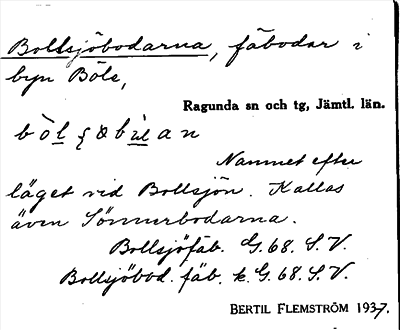 Bollsjöbodarna, fäbodar i
byn Böle,
Ragunda sn och tg, Jämtl. län.
Namnet efter
läget vid Bollsjön. Kallas
även Sönnerbodarna.
Bollsjöfäb. G.68. S.V.
Bollsjöbod. fäb. k. G.68. S.V.
BERTIL FLEMSTRÖM 1937.